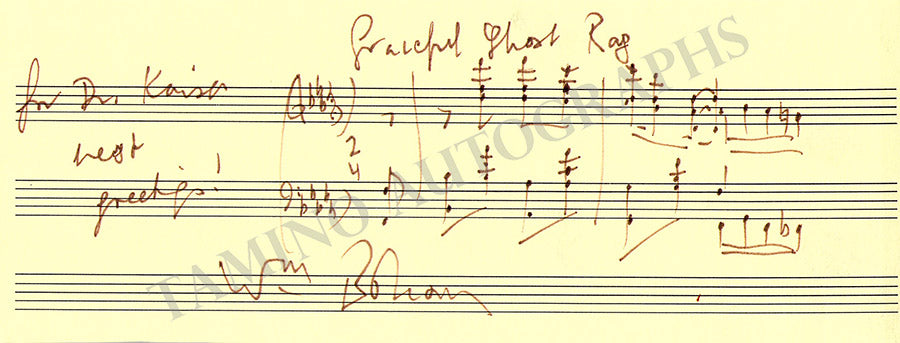 Graceful Ghost Rag
for Dr. Kaiser
best
greetings!
2
4
Wm Bolcom
TAMINO AUTOGRAPHS